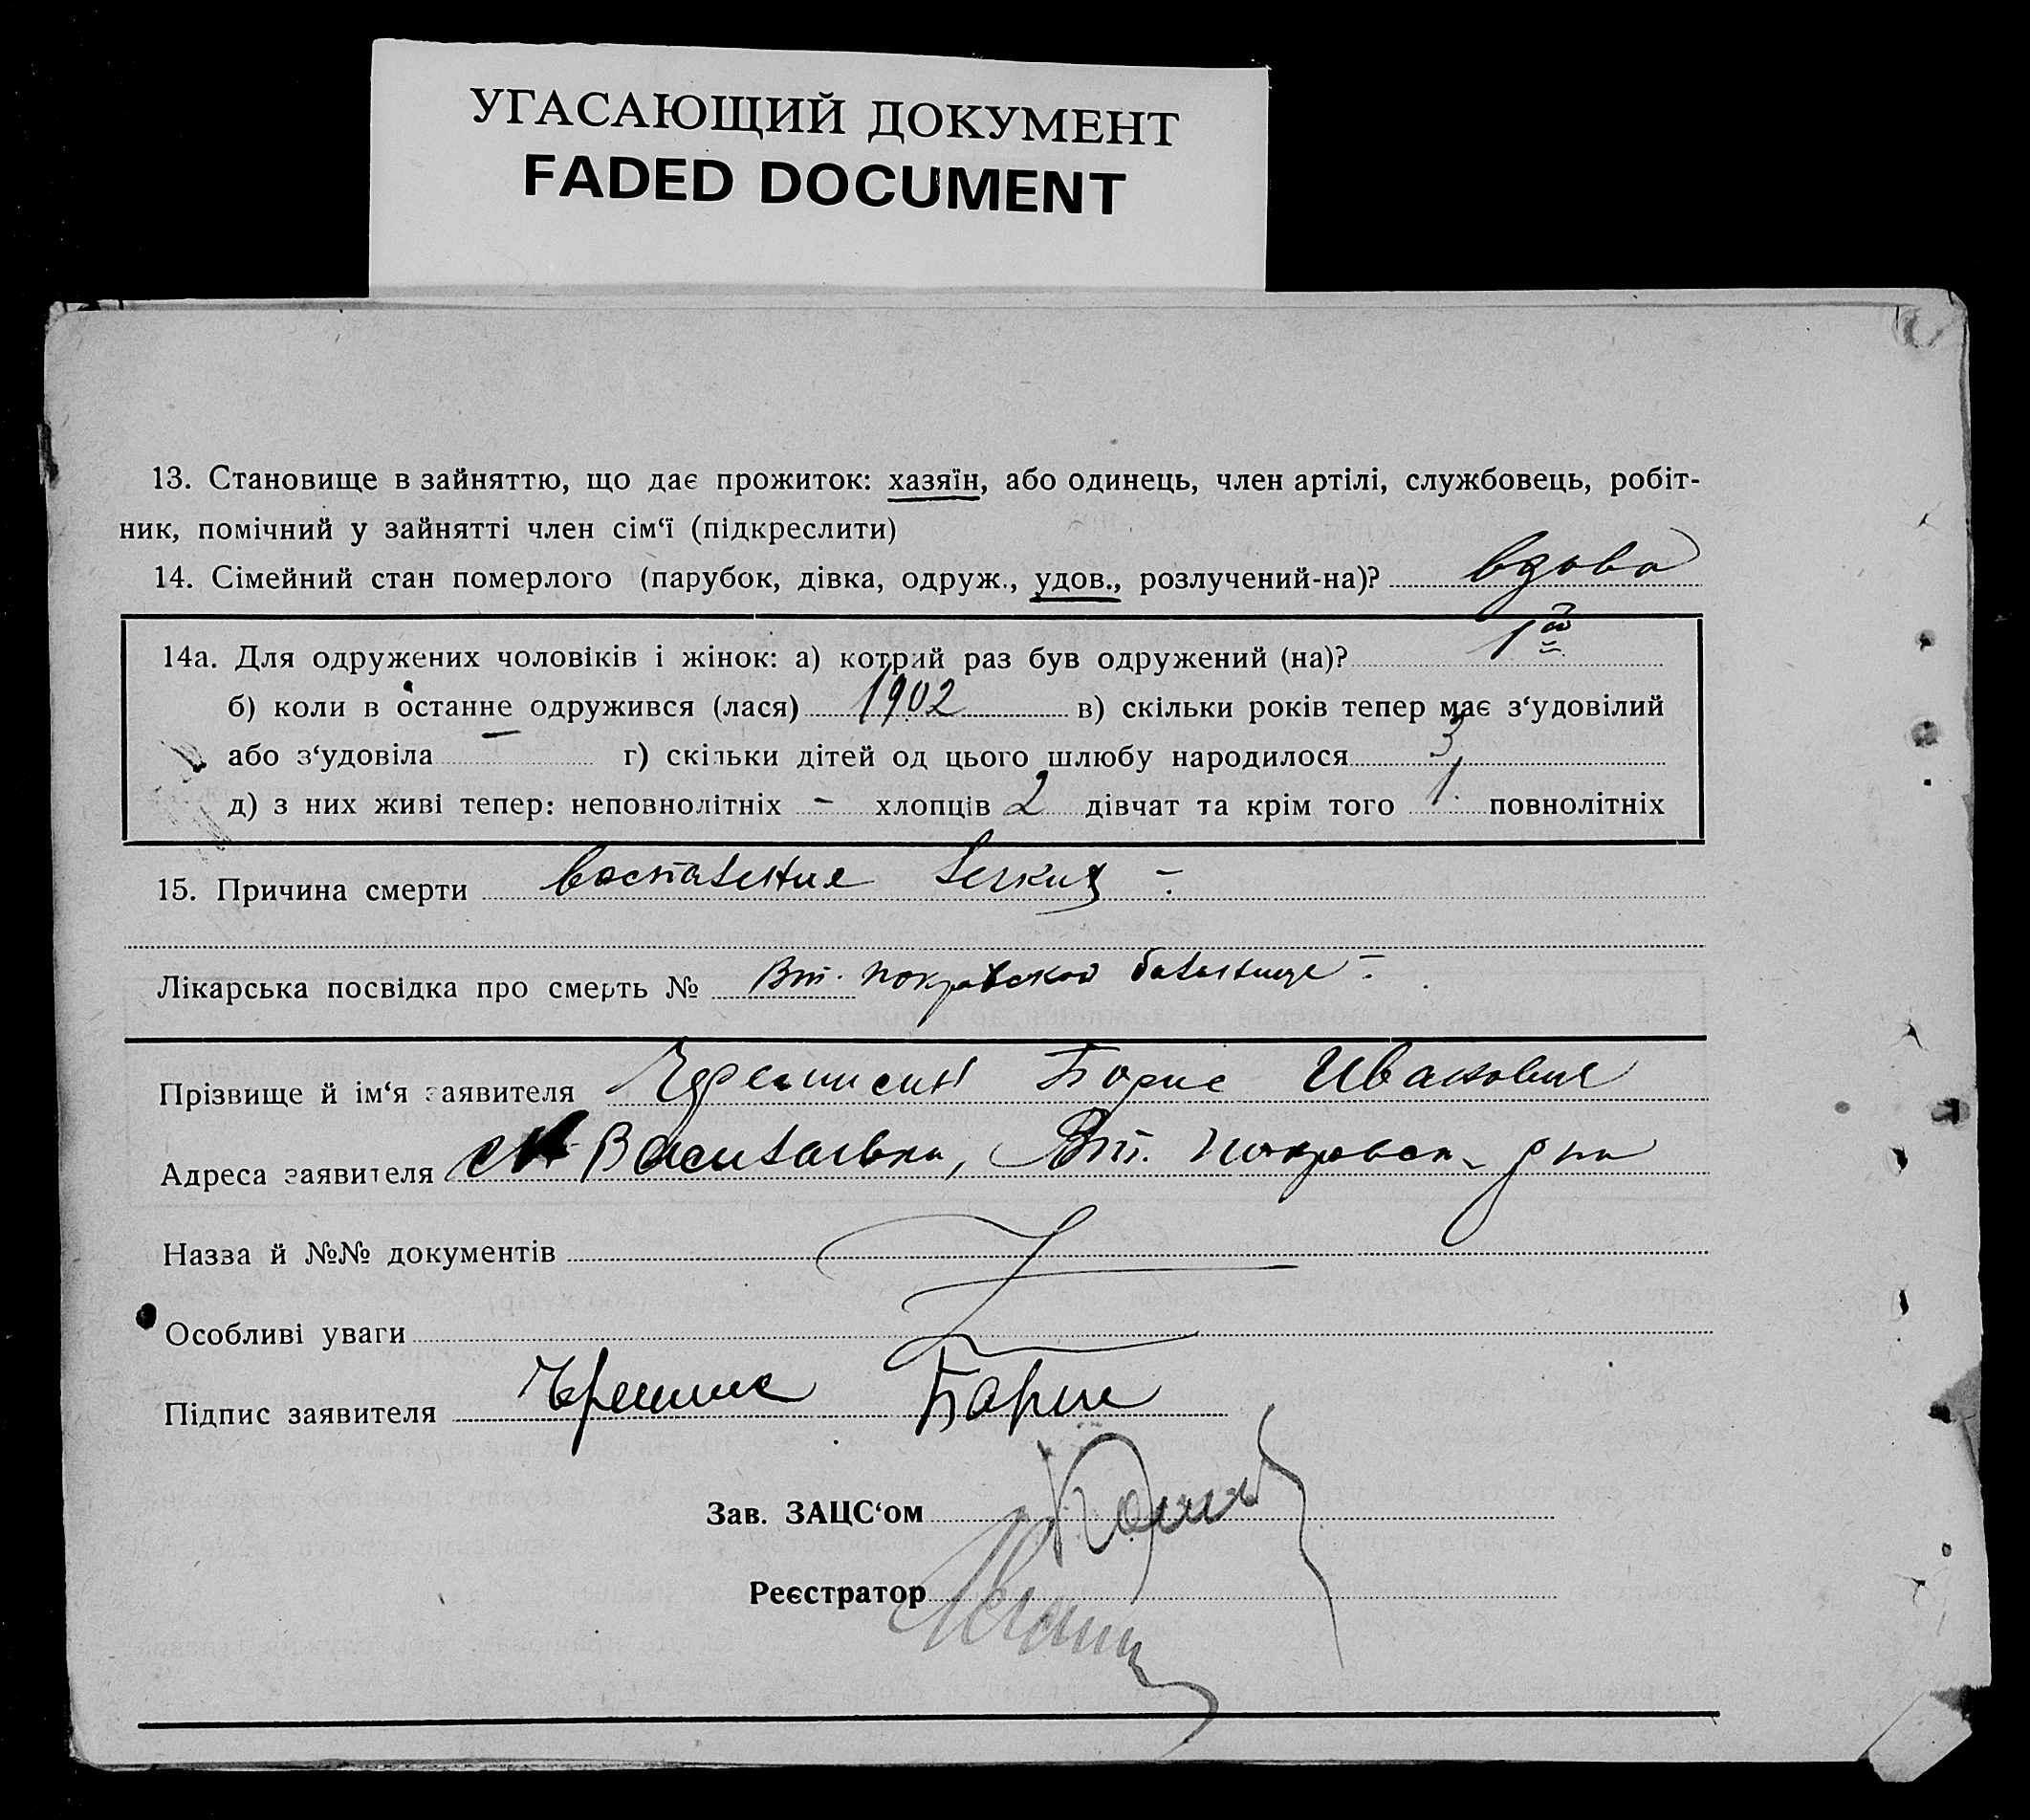 УГАСАЮЩИЙ ДОКУМЕНТ
FADED DOCUMENT
13. Становище в зайняттю, що дає прожиток: хазяїн, або одинець, член артілі, службовець, робіт-
ник, помічний у зайнятті член сім‘ї (підкреслити)
14. Сімейний стан померлого (парубок, дівка, одруж., удов., розлучений-на)? вдова
14а. Для одружених чоловіків і жінок: а) котрий раз був одружений (на)? 1й
б) коли в останне одружився (лася) 1902 в) скільки років тепер має з‘удовілий
або з‘удовіла — г) скільки дітей од цього шлюбу народилося 3
д) з них живі тепер: неповнолітніх - хлопців 2 дівчат та крім того 1 повнолітніх
15. Причина смерти воспаление легких -
Лікарська посвідка про смерть № Вт. Покровской больнице -
Прізвище й ім‘я заявителя Борис Иванович
Адреса заявителя Васильевка, Вт. Покровск- р на
Назва й №№ документів
Особливі уваги
Підпис заявителя Борис
Зав. ЗАЦС‘ом
Реєстратор